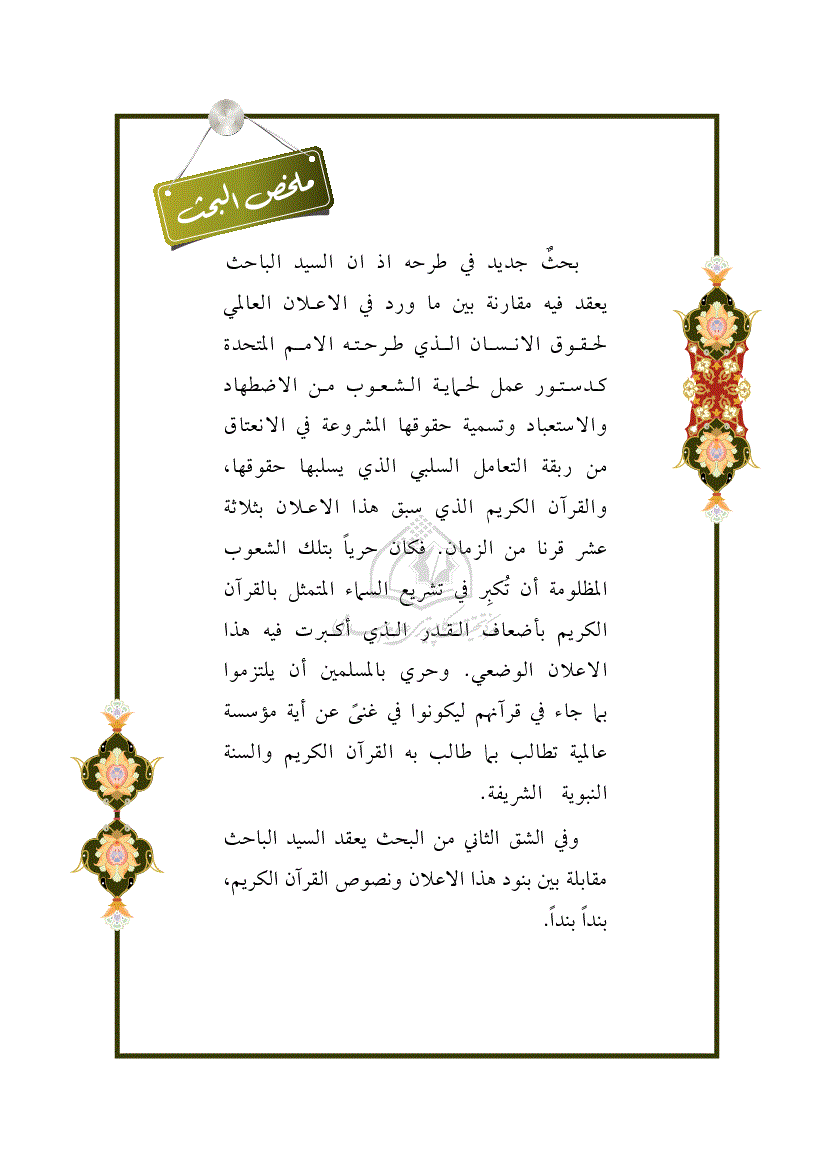 ملخص البحث
بحثٌ جديد في طرحه اذ ان السيد الباحث
يعقد فيه مقارنة بين ما ورد في الاعلان العالمي
لحقوق الانسان الذي طرحته الامم المتحدة
كدستور عمل لحماية الشعوب من الاضطهاد
والاستعباد وتسمية حقوقها المشروعة في الانعتاق
من ربقة التعامل السلبي الذي يسلبها حقوقها،
والقرآن الكريم الذي سبق هذا الاعلان بثلاثة
عشر قرنا من الزمان. فكان حرياً بتلك الشعوب
المظلومة أن تُكبِر في تشريع السماء المتمثل بالقرآن
الكريم بأضعاف القدر الذي أكبرت فيه هذا
الاعلان الوضعي. وحري بالمسلمين أن يلتزموا
بما جاء في قرآنهم ليكونوا في غنىً عن أية مؤسسة
عالمية تطالب بما طالب به القرآن الكريم والسنة
النبوية الشريفة.
وفي الشق الثاني من البحث يعقد السيد الباحث
مقابلة بين بنود هذا الاعلان ونصوص القرآن الكريم،
بنداً بنداً.